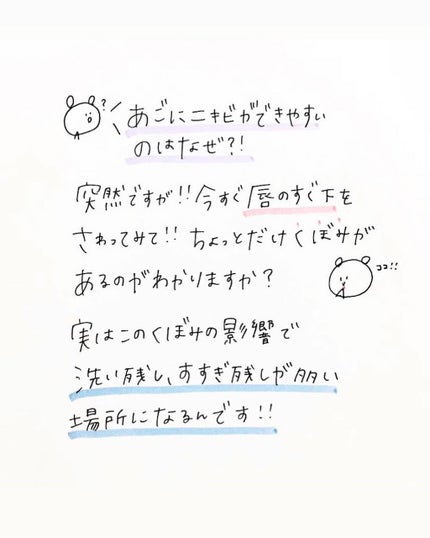 ?
あごにニキビができやすい
のはなぜ?!
突然ですが!!今すぐ唇のすぐ下を
さわってみて!!ちょっとだけくぼみが
ココ!!
あるのがわかりますか?
実はこのくぼみの影響で
洗い残し、すすぎ残しが多い
場所になるんです!!